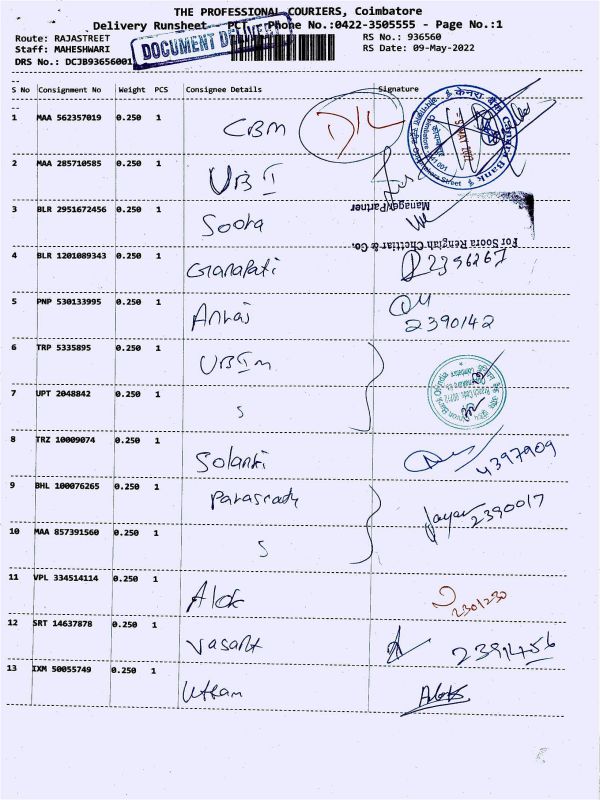 THE PROFESSIONAL COURIERS, Coimbatore
Delivery Runsheet - PCL - Phone No.:0422-3505555 - Page No.:1
Route: RAJASTREET
RS No.: 936560
Staff: MAHESHWARI
RS Date: 09-May-2022
DRS No.: DCJB93656001
DOCUMENT DELIVERY
S No Consignment No Weight PCS Consignee Details Signature
1 MAA 562357019 0.250 1 CBM D/L
केनरा बैंक Canara Bank
2 MAA 285710585 0.250 1 UBI
3 BLR 2951672456 0.250 1 Soora
For Soora Rengiah Chettiar & Co.
Manager/Partner
4 BLR 1201089343 0.250 1 Ganapati 2396267
5 PNP 530133995 0.250 1 2390142
6 TRP 5335895 0.250 1
7 UPT 2048842 0.250 1 s
8 TRZ 10009074 0.250 1 Solanki 4397909
9 BHL 100076265 0.250 1 Jayan 2390017
10 MAA 857391560 0.250 1 s
11 VPL 334514114 0.250 1 Alok 2301230
12 SRT 14637878 0.250 1 Vasant 2391456
13 IXM 50055749 0.250 1 Uttam